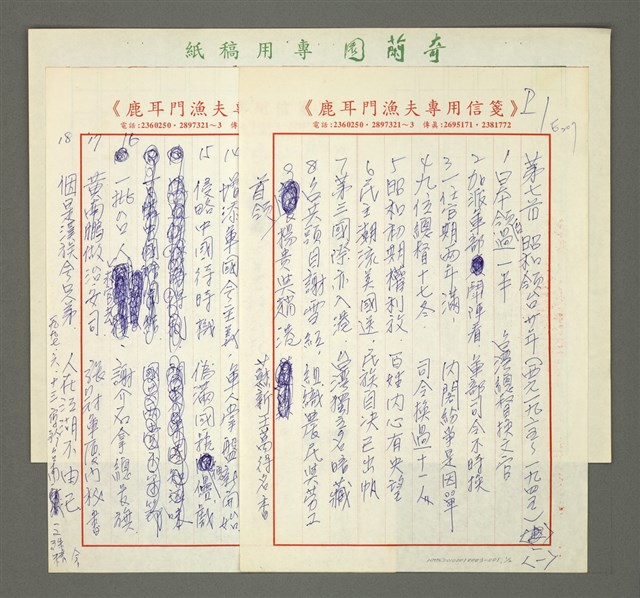 奇蘭園專用稿紙
《鹿耳門漁夫專用信箋》
電話:2360250・2897321~3 傳真:2695171・2381772
P1
第七首 昭和領台廿年(西元一九二六~一九四五)
1 日本領台過一半 台灣總督換文官
2 加派軍部鬥陣看 軍部司令不時換
3 一任官期兩年滿, 內閣紛爭是因單
4 九位總督十七冬, 司令換過十一人
5 昭和初期權利放, 百姓內心有央望
6 民主潮流美國送, 民族自決已出帆
7 第三國際亦入港, 台灣獨立名暗藏
8 台共頭目謝雪紅, 組織農民與勞工
9 楊貴與趙港
蘇新王萬得名香
首領
《鹿耳門漁夫專
電話:2360250・2897321~3 傳
14 增添軍國今主義, 軍人掌盤新開始
15 侵略中國待時機 偽滿國搞傀儡戲
16 一批台人
謝介石拿總長旗
17 黃南鵬做治安司, 張
18 個是漢族今兄弟 人在江湖不由己